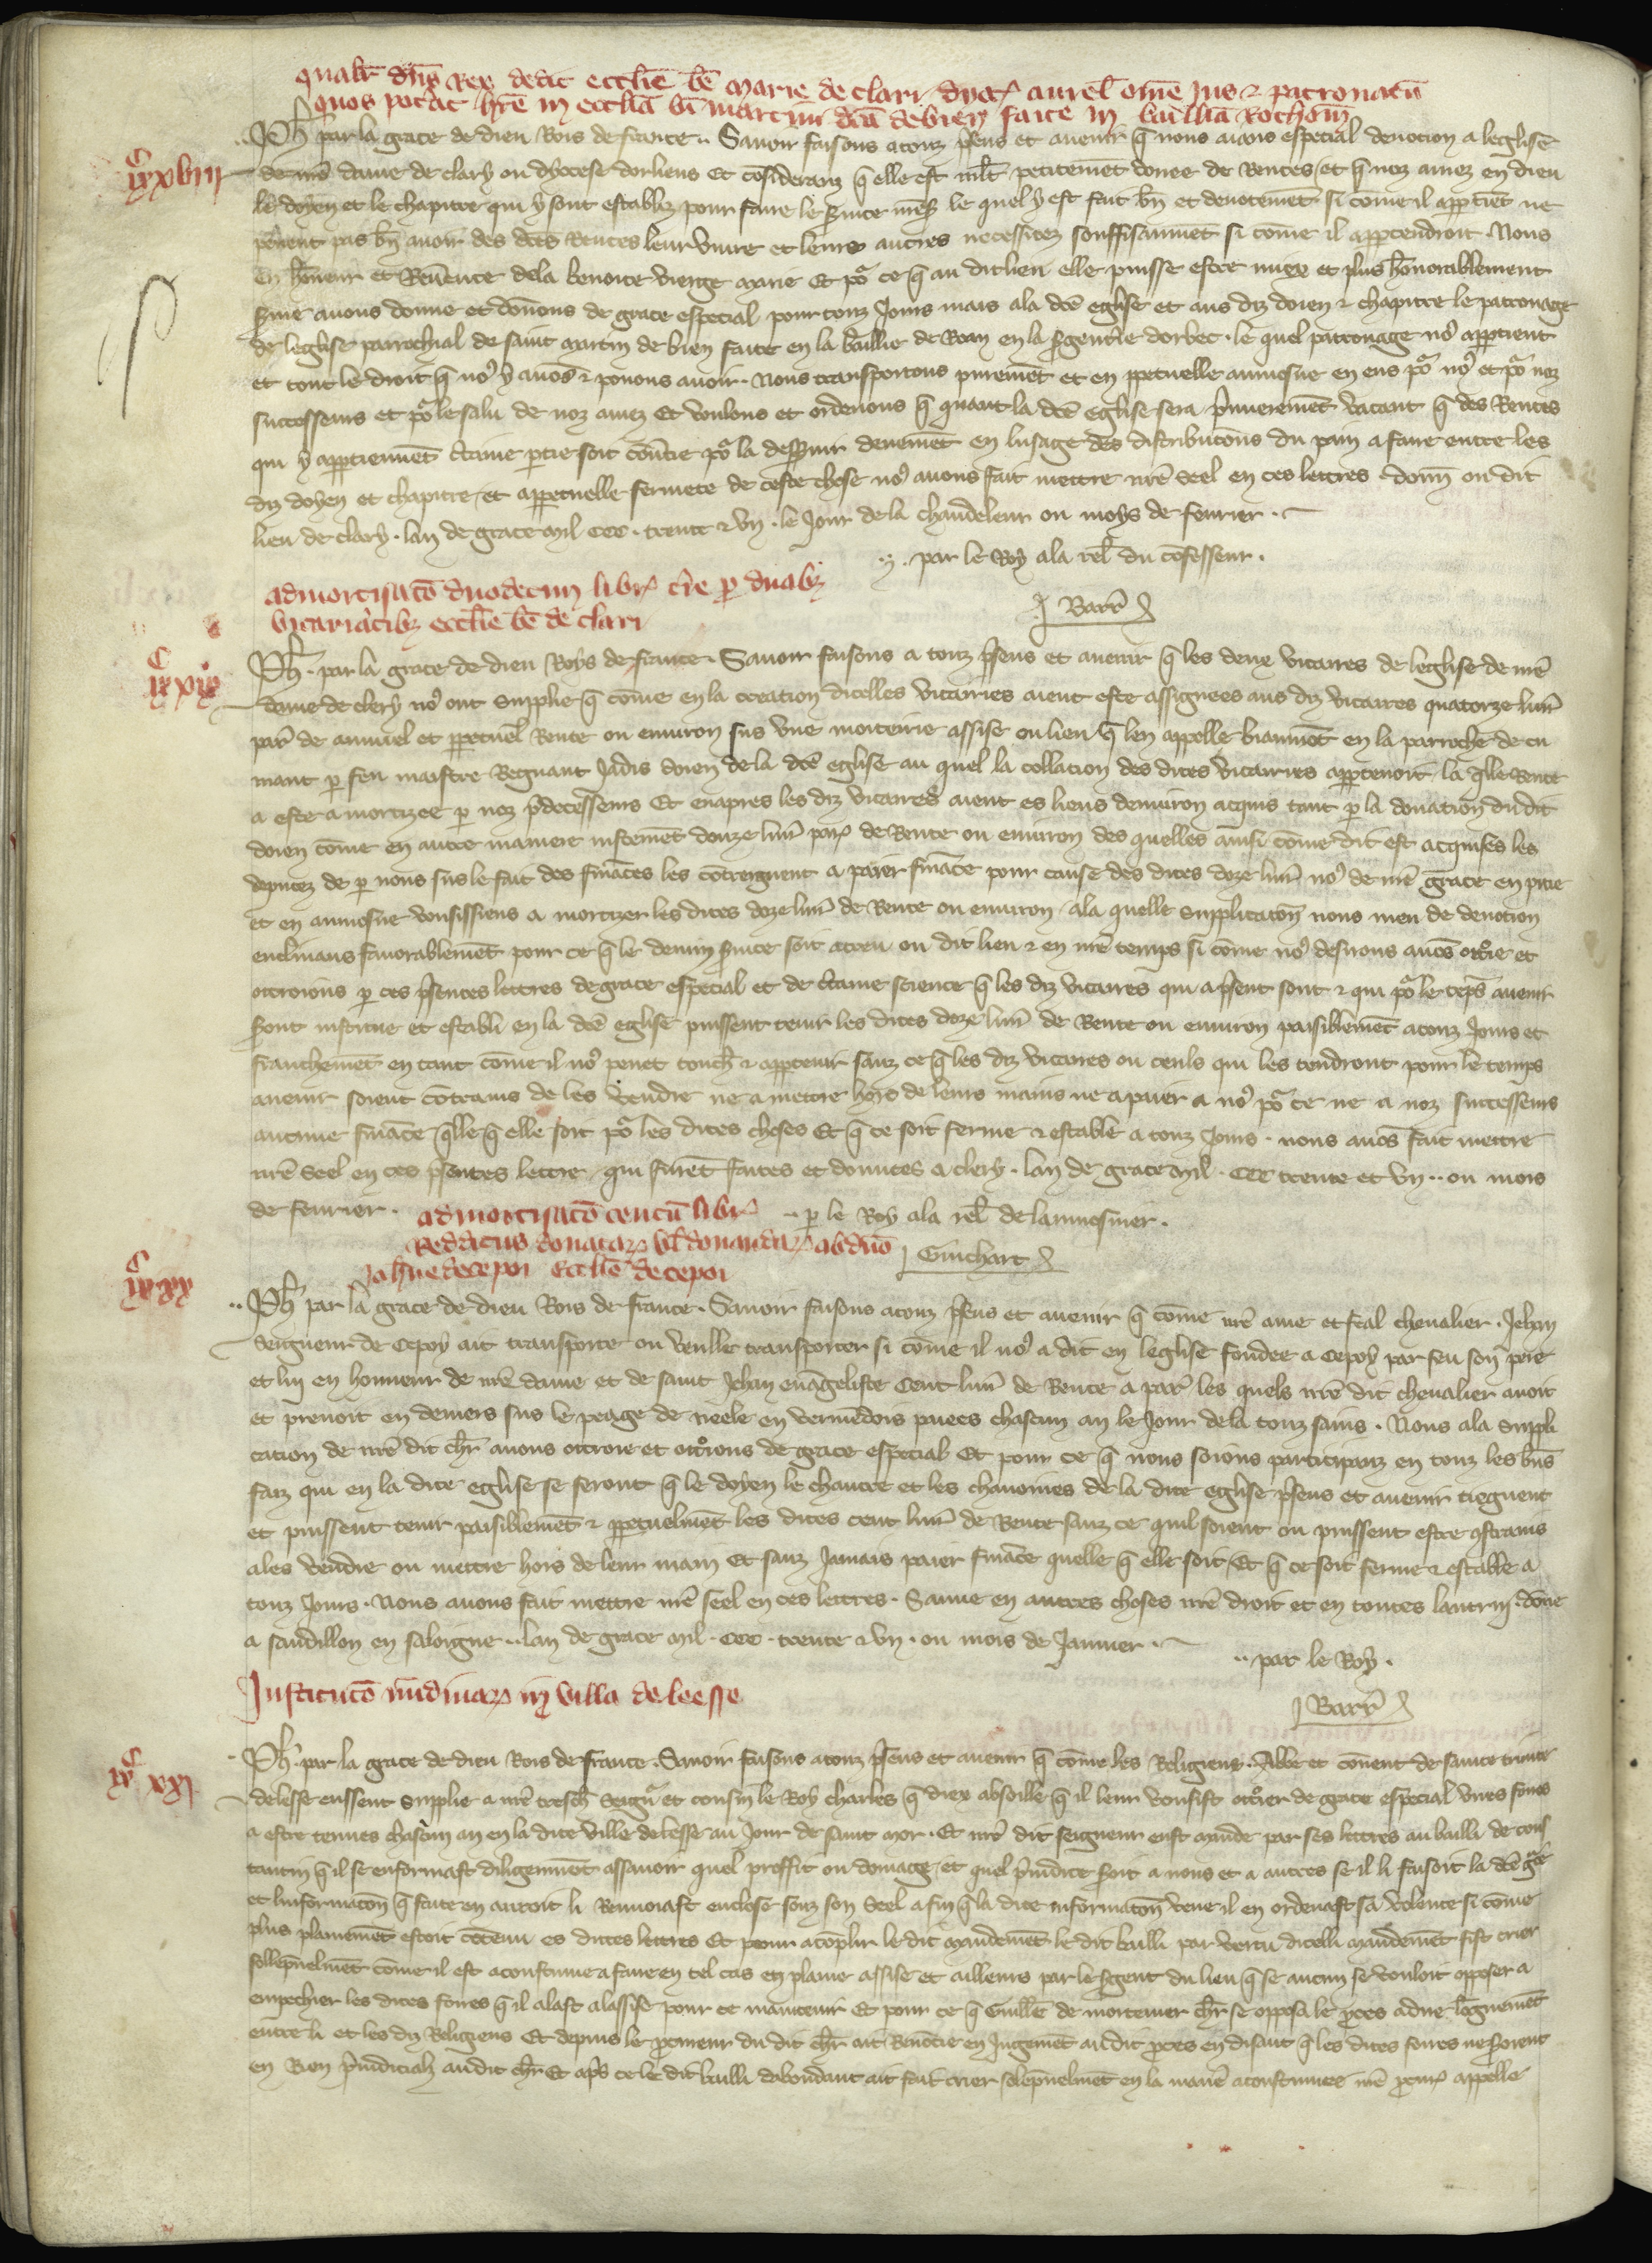 qualr dns Rex dedit ecclie be marie de clari dyoc aurel ome jus et patronatu
quos potat hre in ecclia bi martini dca de bien faite in baillia Rothom
Ph par la grace de dieu Rois de france. Savoir faisons a touz psens et avenir q nous avons especial devocion a leglise
ixc xviii
de nre dame de clery ou dyocese dorliens Et consideranz q elle est mlt petitemet douee de Rentes et q noz amez en dieu
le doyen et le chapitre qui y sont establiz pour faire le svice mes le quel y est fait bn et devotemet si come il apptiet ne
pevent pas bn avoir des dces Rentes leur vivre et leurs autres necessitez souffisaumet si come il apptendroit. Nous
en honneur et Revence de la benoite vierge marie Et por ce q au dit lieu elle puisse estre miex et plus honorablement
svie avons donne et donnons de grace especial pour touz jours mais a la dce eglise et aus diz doien et chapitre le patronage
de leglise parrochial de saint martin de bien faite en la baillie de Roan en la sgenterie dorbec. le quel patronage nos apptient
et tout le droit q nos y avos et povons avoir. Nous transportons purement et en ppetuelle aumosne en eus por nos et por noz
successeurs et por le salu de noz amez Et voulons et ordenons q quant la dce eglise sera primierement vacant q des Rentes
qui y apptiennet ctaine ptie soit convtie por la desservir deuemet en lusage des distributions du pain a faire entre les
diz doyen et chapitre. et a ppetuelle fermete de ceste chose nos avons fait mettre nre seel en ces lettres. donn ou dit
lieu de clery. lan de grace mil ccc. trente et un. le jour de la chandeleur ou moys de fevrier.
par le Roy a la rel du confesseur.
Barr
admortisato duodecim libr tre p duabz
vicariatibz ecclie be de clari
ixc xix
Ph. par la grace de dieu Roys de france. Savoir faisons a touz psens et avenir q les deux vicaires de leglise de nre
dame de clery nos ont supplie q come en la creation dicelles vicairies aient este assignees aus diz vicaires quatorze livr
par de annuel et ppetuel Rente ou environ sus une moiteirie assise ou lieu q len appelle biaumot en la parroche de cu
mant p feu maistre Regnaut jadis doien de la dce eglise au quel la collacion des dites vicairies apptenoit. la qlle Rente
a este amortizee p noz pdecesseurs Et en apres les diz vicaires aient es lieus denviron acquis tant p la donation du dit
doien come en autre maniere justemet douze livr par de Rente ou environ des quelles ainsi come dit est acquises les
deputez de p nous sus le fait des finaces les contreignent a paier finace pour cause des dites doze livr nos de nre grace en pitie
et en aumosne vousissiens amortizer les dites doze livr de Rente ou environ. a la quelle supplication nous meu de devotion
enclinans favorablemet pour ce q le devin svice soit acreu ou dit lieu et en nre temps si come nos desirons avos otroie et
ottroions p ces psentes lettres de grace especial et de ctaine science q les diz vicaires qui a psent sont et qui por le teps avenir
sont institue et establi en la dce eglise puissent tenir les dites doze livr de Rente ou environ paisiblemet a touz jours et
franchemet en tant come il nos peuet touch et apptenir sanz ce q les diz vicaires ou ceuls qui les tendront pour le temps
avenir soient cotrains de les vendre ne a mettre hors de leurs mains ne a paier a nos por ce ne a noz successeurs
aucune finace qlle q elle soit por les dites choses Et q ce soit ferme et estable a touz jours. nous avos fait mettre
nre seel en ces psentes lettre qui furet faites et donnees a clery. lan de grace mil. ccc trente et un. ou mois
de fevrier.
p le Roy a la rel de laumosnier.
Guichart
admortisato centu libr
Reddituus donatar vl donandar ab duo
Johne de cepoi ecclie de cepoi
ixc xx
Ph par la grace de dieu Rois de france. Savoir faisons a touz psens et avenir q come nre ame et feal chevalier. Jehan
seigneur de Cepoy ait transporte ou veulle transporter si come il nos a dit en leglise fondee a Cepoy par feu son pere
et lui en honneur de nre dame et de saint Jehan evangeliste Cent livr de Rente a par les quels nre dit chevalier avoit
et prenoit en deniers sus le peage de neele en vermedois paiees chascun an le jour de la touz sains. Nous a la suppli
cation de nre dit chr avons ottroie et otroions de grace especial Et pour ce q nous soions participanz en touz les bns
faiz qui en la dite eglise se feront q le doyen le chantre et les chanoines de la dite eglise psens et avenir tiegnent
et puissent tenir paisiblemet et ppetuelmet les dites cent livr de Rente sanz ce quil soient ou puissent estre cstrains
a les vendre ou mettre hors de leur main Et sanz jamais paier finace quelle q elle soit. Et q ce soit ferme et estable a
touz jours. Nous avons fait mettre nre seel en ces lettres. Sauve en autres choses nre droit et en toutes lautrui. donne
a sandillon en saloigne. lan de grace mil. ccc. trente et un. ou mois de Janvier.
par le Roy.
Barr
Institutio nundinar in villa de leesse
ixc xxi
Ph. par la grace de dieu Rois de france. Savoir faisons a touz psens et avenir q come les Religieux. Abbe et convent de sainte trinite
de lesse eussent supplie a nre tresch seigneur et cousin le Roy charles q diex absoille q il leur vousist otroier de grace especial unes foires
a estre tenues chascun an en la dite ville de lesse au jour de saint mor. Et nre dit seigneur eust mande par ses lettres au bailli de cons
tantin q il se enformast diligemmet assavoir quel proffit ou domage et quel prejudice seroit a nous et a autres se il li faisoit la dce gce
et linformacon q faite en auroit li Renvoiast enclose souz son seel a fin q la dite informacon veue il en ordenast sa volente si come
plus plainemet estoit cotenu es dittes lettres Et pour acoplir le dit mandemet le dit bailli par vertu dicelli mandemet fist crier
sollepnelmet come il est acoustume a faire en tel cas en plaine assise et ailleurs par le sgent du lieu q se aucun se vouloit opposer a
empechier les dites foires q il alast a lassise pour ce maintenir Et pour ce q Guille de mortemer chr se opposa le pces a dure loguemet
entre li et les diz Religieus Et depuis le pcureur du dit chr ait Renocie en jugemet au dit pces en disant q les dites foires ne seroient
en Rien prejudicialz au dit chr Et aps ce le dit bailli dabondant ait fait crier solepnelmet en la manie acoustumee nre pcur appelle